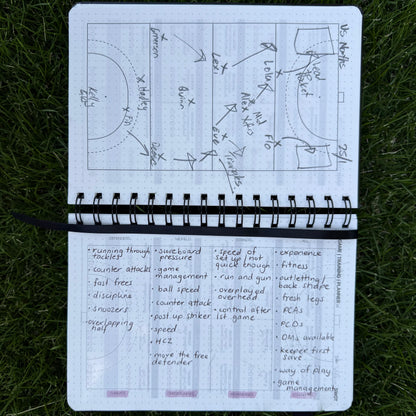 Vs. Norths
25/1
Lead
Pocket
Emerson
Lexi
Lou
Quinn
Mid
Alex
Flo
Hatley
Eve
Triangles
running through
tackles
counter attacks
fast frees
discipline
snoozers
overlapping
half
scoreboard
pressure
game
management
ball speed
counter attack
post up striker
speed
HC2
move the free
defender
speed of
set up / not
quick enough
run and gun
overplayed
overhead
control after
1st game
experience
fitness
outletting /
back shape
fresh legs
PCAs
PCDs
DMs available
keeper first
save
way of play
game
management
GAME / TRAINING PLANNER